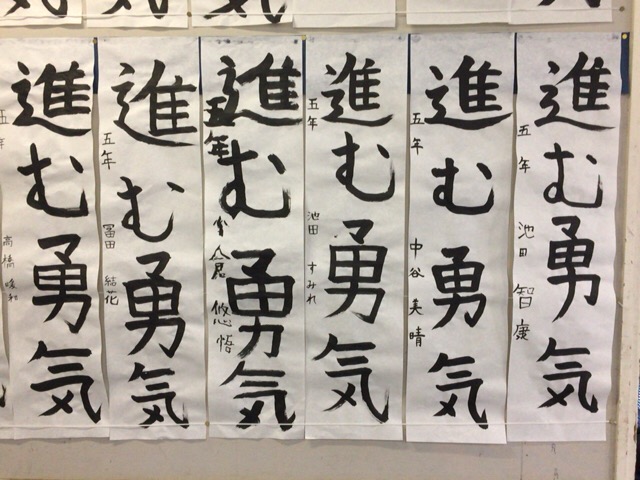 進む勇気
五年 池田 智康
進む勇気
五年 中谷 美晴
進む勇気
五年 池田 すみれ
進む勇気
五年 小倉 悠悟
進む勇気
五年 冨田 結花
進む勇気
五年 高橋